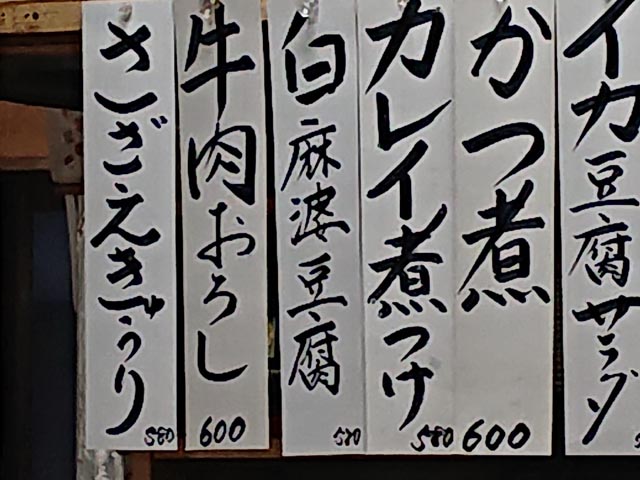 イカ豆腐サラダ
かつ煮
600
カレイ煮つけ
580
白麻婆豆腐
520
牛肉おろし
600
さざえきゅうり
580